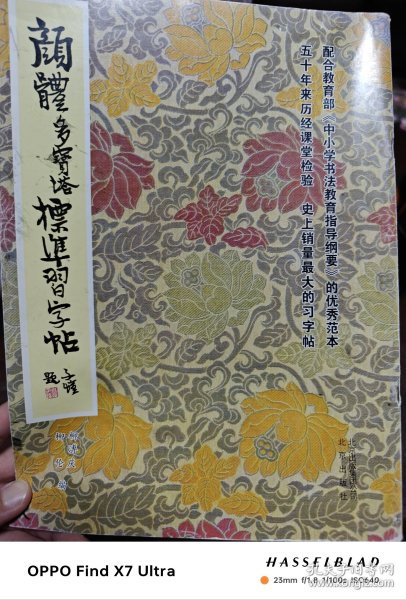 顔體多寶塔標準習字帖
子愷
題
配合教育部《中小学书法教育指导纲要》的优秀范本
五十年来历经课堂检验 史上销量最大的习字帖
柳溥庆
柳伦 编
北京出版集团
北京出版社
OPPO Find X7 Ultra
HASSELBLAD
23mm f/1.8 1/100s ISO640
孔夫子旧书网